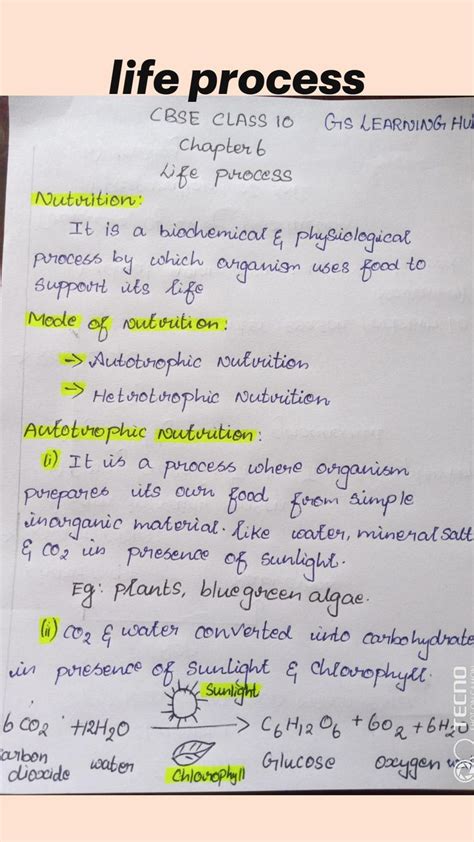 life process
CBSE CLASS 10 GS LEARNING Hu
Chapter 6
Life process
Nutrition:
It is a biochemical & physiological
process by which organism uses food to
support its life
Mode of nutrition:
→ Autotrophic nutrition
→ Hetrotrophic nutrition
Autotrophic nutrition:
(i) It is a process where organism
prepares its own food from simple
inorganic material. like water, mineral salt
& CO2 in presence of sunlight.
Eg: plants, bluegreen algae.
(ii) CO2 & water converted into carbohydrate
in presence of sunlight & chlorophyll.
Sunlight
6 CO2 +12H2O → C6H12O6 +6O2 +6H2O
carbon dioxide water Chlorophyll Glucose oxygen
TECNO